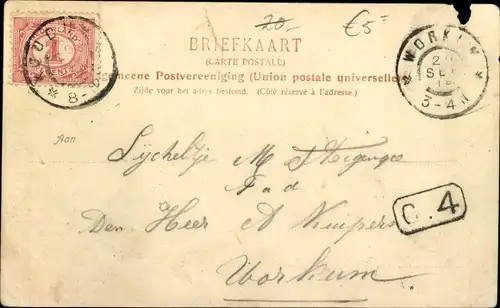 20.- €5=
BRIEFKAART
(CARTE POSTALE)
Algemeene Postvereeniging (Union postale universelle)
Zijde voor het adres bestemd. (Côté réservé à l'adresse.)
KOUDUM
8-
1
WORKUM
SEP
3-4N
Aan
M
Den Heer A Kuipers
Workum
C.4